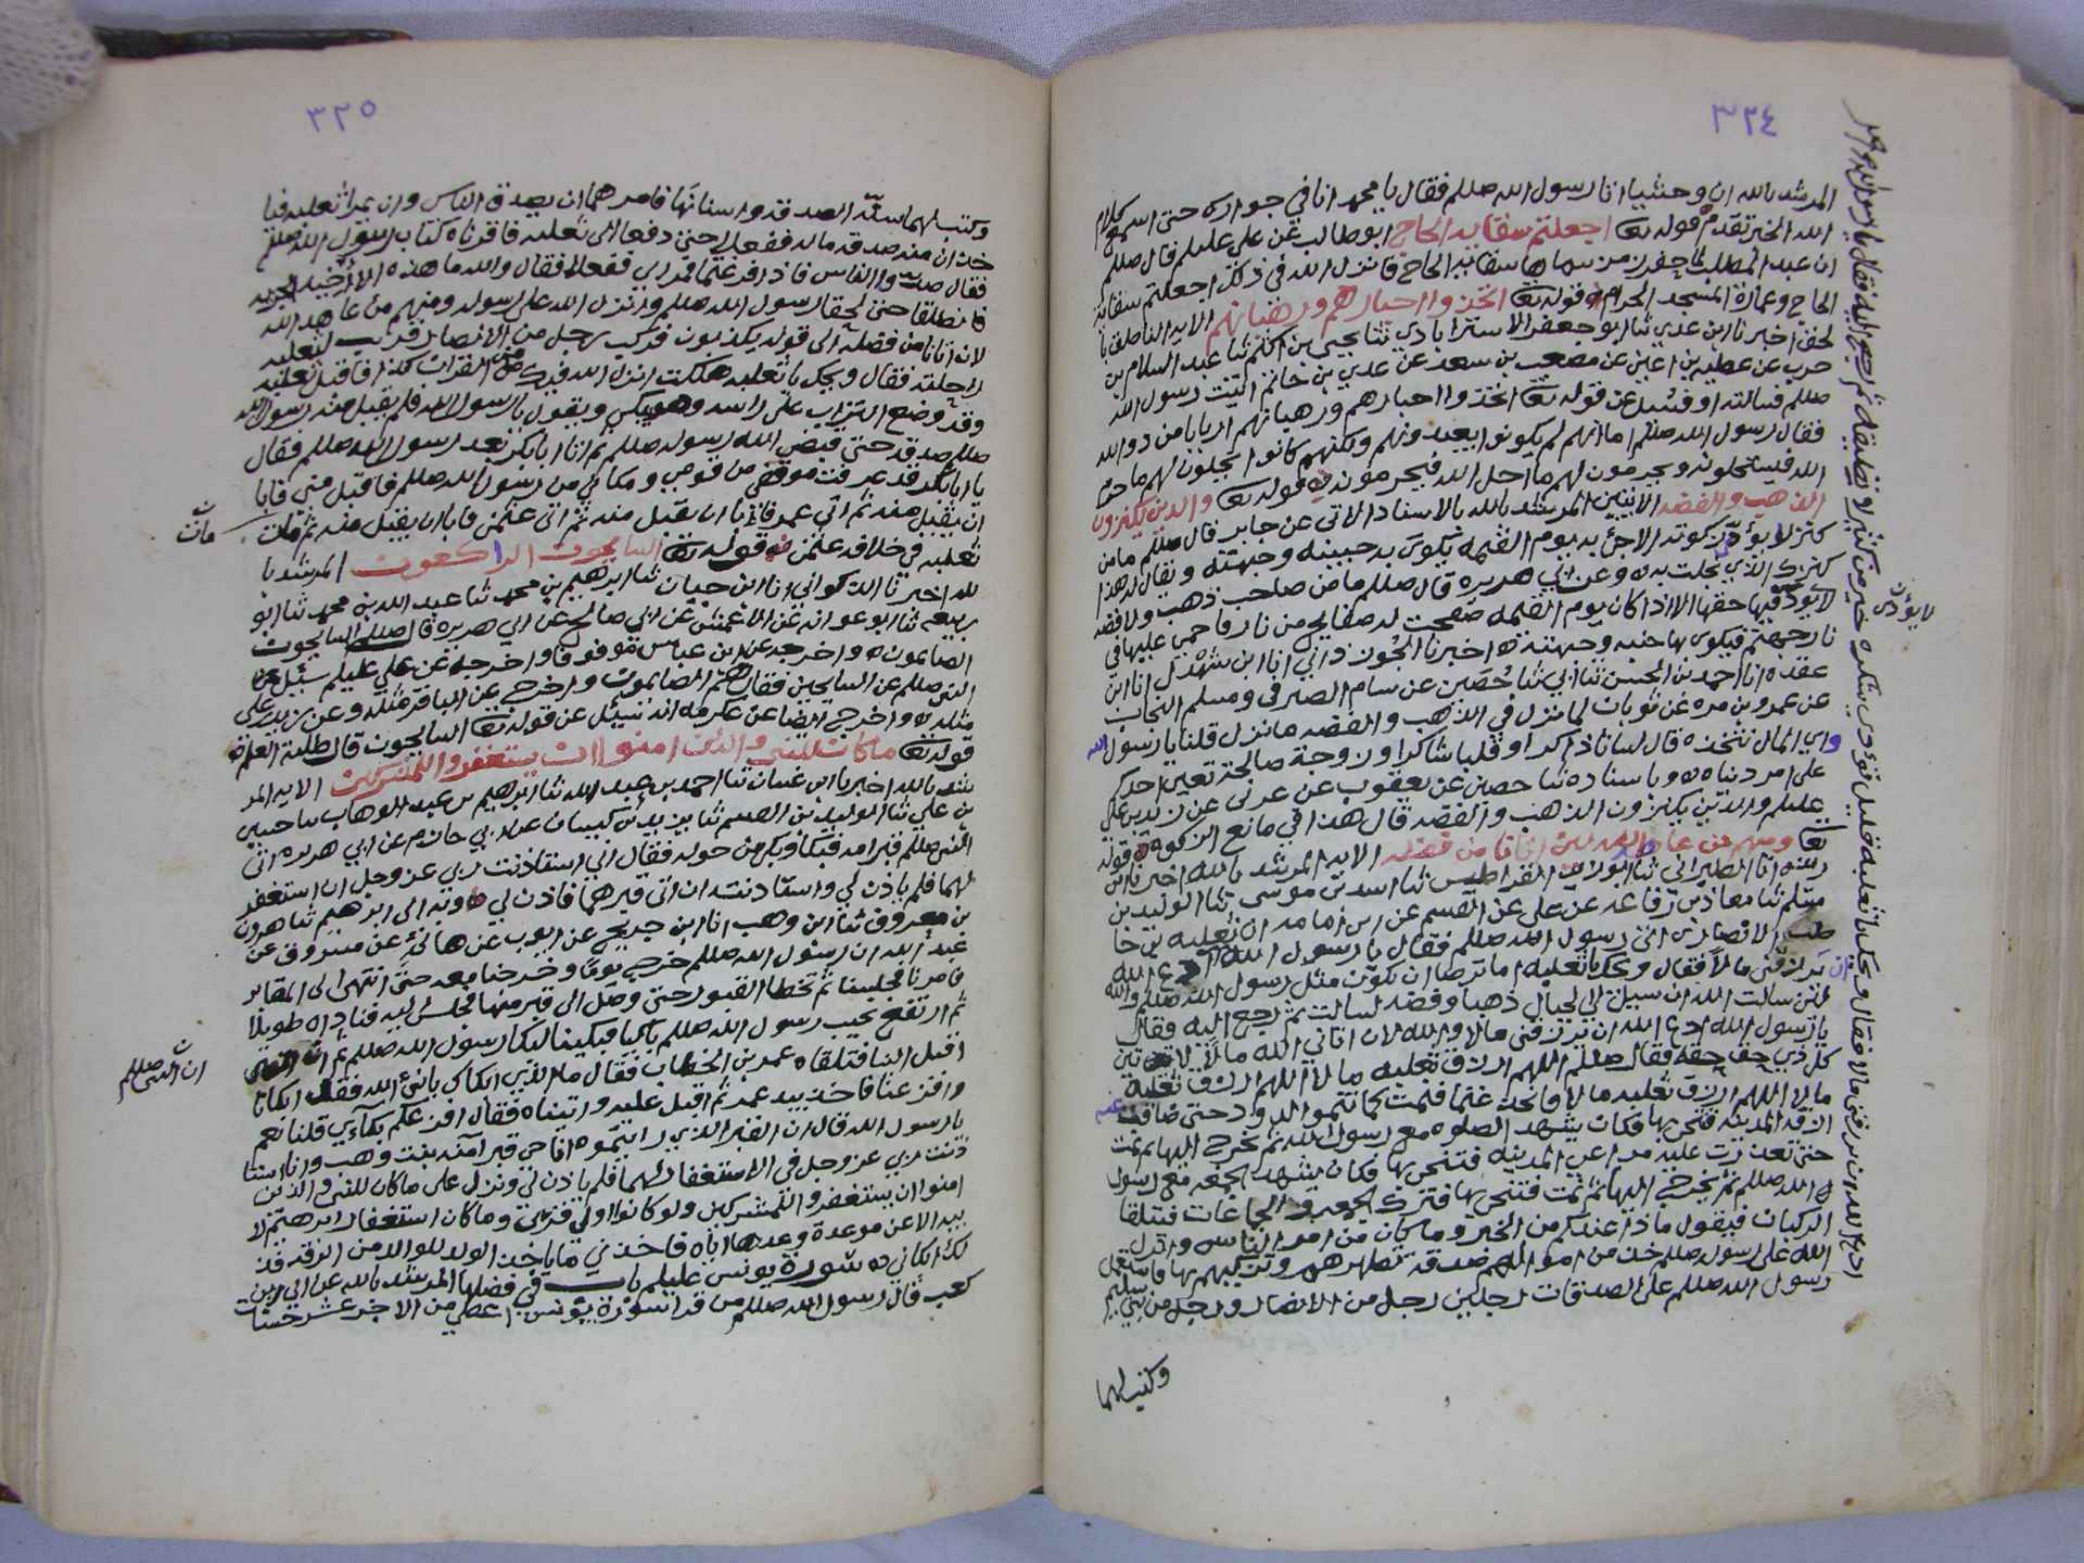 ٣٢٤
المرشد بالله ان وحشيا اتا رسول الله صللم فقال يا محمد انا في جوارك حتى اسمع كلام
الله الخبر تقدم قوله تعا اجعلتم سقاية الحاج ابو طالب عن علي عليلم قال صللم
ان عبد المطلب لما حفر زمزم سماها سقاية الحاج فانزل الله في ذلك اجعلتم سقاية
الحاج وعمارة المسجد الحرام قوله تعا اتخذوا احبارهم ورهبانهم الاية الناطق با
لحق اخبرنا ابن عدي ثنا ابو جعفر الاسترابادي ثنا يحيى بن اكثم ثنا عبد السلام بن
حرب عن عطيه بن اعين عن مصعب بن سعد عن عدي بن حاتم اتيت رسول الله
صللم فسالته او فسئل عن قوله تعا اتخذوا احبارهم ورهبانهم اربابا من دون الله
فقال رسول الله صللم اما انهم لم يكونوا يعبدونهم ولكنهم كانوا يحلون لهم ما حرم
الله فيستحلونه ويحرمون لهم ما احل الله فيحرمونه قوله تعا والذين يكنزون
الذهب والفضه الايتين المرشد بالله بالاسناد الاتي عن جابر قال صللم ما من
كنز لا يؤدى زكوته الا جئ به يوم القيمه تكوى به جبينه وجبهته ويقال له هذا
كنزك الذي بخلت به وعن ابي هريره قال صللم ما من صاحب ذهب ولا فضه
لا يؤدى فيها حقها الا اذا كان يوم القيمه صفحت له صفايح من نار فاحمي عليها في
نار جهنم فيكوى بها جنبه وجبهته اخبرنا الجوزداني انا ابن شهدل انا ابن
عقده انا احمد بن الحسن ثنا ابي ثنا حصين عن بسام الصيرفي ومسلم النجاب
عن عمرو بن مره عن ثوبان لما نزل في الذهب والفضه ما نزل قلنا يا رسول الله
واي المال نتخذه قال لسانا ذاكرا وقلبا شاكرا وزوجة صالحة تعين احدكم
على امر دنياه وباسناده ثنا حصين عن يعقوب عن عربي عن زيد بن علي
عليلم والذين يكنزون الذهب والفضه قال هذا في مانع الزكوة قوله
تعا ومنهم من عاهد الله لئن اتانا من فضله الاية المرشد بالله اخبرنا ابن
ريذه انا الطبراني ثنا ابو يزيد القراطيسي ثنا اسد بن موسى ثنا الوليد بن
مسلم ثنا معاذ بن رفاعه عن علي عن القسم عن ابي امامه ان ثعلبه بن حا
طب الانصاري اتى رسول الله صللم فقال يا رسول الله ادع الله
ان يرزقني مالا فقال ويحك يا ثعلبه اما ترضا ان تكون مثل رسول الله صللم والله
لئن سالت الله ان سيل لي الجبال ذهبا وفضه لسالت ثم رجع اليه فقال
يا رسول الله ادع الله ان يرزقني مالا والله لان اتاني الله مالا لاوتين
كل ذي حق حقه فقال صللم اللهم ارزق ثعلبه مالا اللهم ارزق ثعلبه
مالا اللهم ارزق ثعلبه مالا فاتخذ غنما فنمت كما تنموا الدود حتى ضاقت عنه
ازقه المدينه فتنحى بها فكان يشهد الصلوه مع رسول الله ثم يخرج اليها ثم نمت
حتى تعذرت عليه مراعي المدينه فتنحى بها فكان يشهد الجمعه مع رسول
الله صللم ثم يخرج اليها ثم نمت فتنحى بها فترك الجمعه والجماعات فيتلقا
الركبان فيقول ماذا عندكم من الخبر وما كان من امر الناس وانزل
الله على رسوله صللم خذ من اموالهم صدقة تطهرهم وتزكيهم بها فاستعمل
رسول الله صللم على الصدقات رجلين رجل من الانصار ورجل من بني سليم
وكتب لهما
لا يؤدى
ادع الله ان يرزقني مالا فقال ويحك يا ثعلبه قليل تؤدي شكره خير من كثير لا تطيقه ثم رجع اليه فقال يا رسول الله
٣٢٥
وكتب لهما سنّة الصدقة واسنانها فامرهما ان يصدق الناس وان يمرا بثعلبه فيا
خذان منه صدقة ماله ففعلا حتى دفعا الى ثعلبه فاقرئاه كتاب رسول الله صللم
فقال صدقوا الناس فاذا فرغتما فمرا بي ففعلا فقال والله ما هذه الا اخية الجزيه
فانطلقا حتى لحقا رسول الله صللم وانزل الله على رسوله ومنهم من عاهد الله
لان اتانا من فضله الى قوله يكذبون فركب رجل من الانصار قريب لثعلبه
راحلته فقال ويحك يا ثعلبه هلكت انزل الله فيك من القران كذا فاقبل ثعلبه
وقد وضع التراب على راسه وهو يبكي ويقول يا رسول الله فلم يقبل منه رسول الله
صللم صدقه حتى قبض الله رسوله صللم ثم اتا ابا بكر بعد رسول الله صللم فقال
يا ابا بكر قد عرفت موقفي من قومي ومكاني من رسول الله صللم فاقبل مني فابا
ان يقبل منه ثم اتى عمر فابا ان يقبل منه ثم اتى عثمن فابا ان يقبل منه ثم مات
ثعلبه في خلافه عثمن قوله تعا السايحون الراكعون المرشد با
لله اخبرنا الذكواني انا ابن حيان ثنا ابرهيم بن محمد ثنا عبد الله بن محمد ثنا ابو
ربيعه ثنا ابو عوانه عن الاعمش عن ابي صالح عن ابي هريره قال صللم السايحون
الصايمون واخرجه عن ابن عباس موقوفا واخرجه عن علي عليلم سئل عن
النبي صللم عن السايحين فقال هم الصايمون واخرج عن الباقر مثله وعن زيد بن علي
مثله واخرج ايضا عن عكرمه انه سئل عن قوله تعا السايحون قال طلبة العلم
قوله تعا ما كان للنبي والذين امنوا ان يستغفروا للمشركين الاية المر
شد بالله اخبرنا ابن غسان ثنا احمد بن عبد الله ثنا ابرهيم بن عبد الوهاب ثنا حسين
بن علي ثنا الوليد بن القسم ثنا يزيد بن كيسان عن ابي حازم عن ابي هريره اتى
النبي صللم قبر امه فبكا وبكى من حوله فقال اني استاذنت ربي عز وجل ان استغفر
لهما فلم ياذن لي واستاذنته ان اتى قبرهما فاذن لي وبه الى ابرهيم ثنا هرون
بن معروف ثنا ابن وهب انا ابن جريج عن ايوب عن هانئ عن مسروق عن
عبد الله ان رسول الله صللم خرج يوما وخرجنا معه حتى انتهى الى المقابر
فامرنا فجلسنا ثم تخطا القبور حتى وصل الى قبر منها فجلس اليه فناداه طويلا
ثم ارتفع نحيب رسول الله صللم باكيا فبكينا لبكا رسول الله صللم ثم ان النبي
اقبل الينا فتلقاه عمر بن الخطاب فقال ما الذي ابكاك يا نبئ الله فقد ابكانا
وافزعنا فاخذ بيد عمر ثم اقبل علينا واتيناه فقال افزعكم بكاءي قلنا نعم
يا رسول الله قال ان القبر الذي رايتموه اناجي قبر امنه بنت وهب وانا استا
ذنت ربي عز وجل في الاستغفار لهما فلم ياذن لي ونزل على ما كان للنبي والذين
امنوا ان يستغفروا للمشركين ولو كانوا اولي قربى وما كان استغفار ابرهيم لا
بيه الا عن موعدة وعدها اياه فاخذني ما ياخذ الولد للوالد من الرقه فذ
لك ابكاني سورة يونس عليلم باب في فضلها المرشد بالله عن ابي بن
كعب قال رسول الله صللم من قرا سورة يونس اعطي من الاجر عشر حسنات
مات
ان النبي صللم